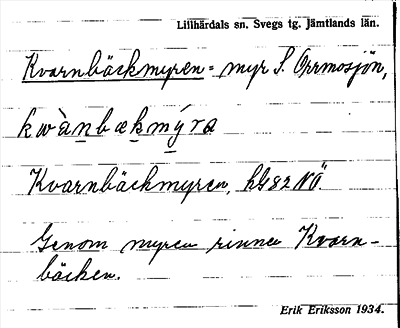 Lillhärdals sn. Svegs tg. Jämtlands län.
Kvarnbäckmyren = myr S. Orrmosjön,
kwàṉbæḵmýra
Kvarnbäckmyren, hbl 82 NÖ.
Genom myren rinner Kvarn-
bäcken.
Erik Eriksson 1934.